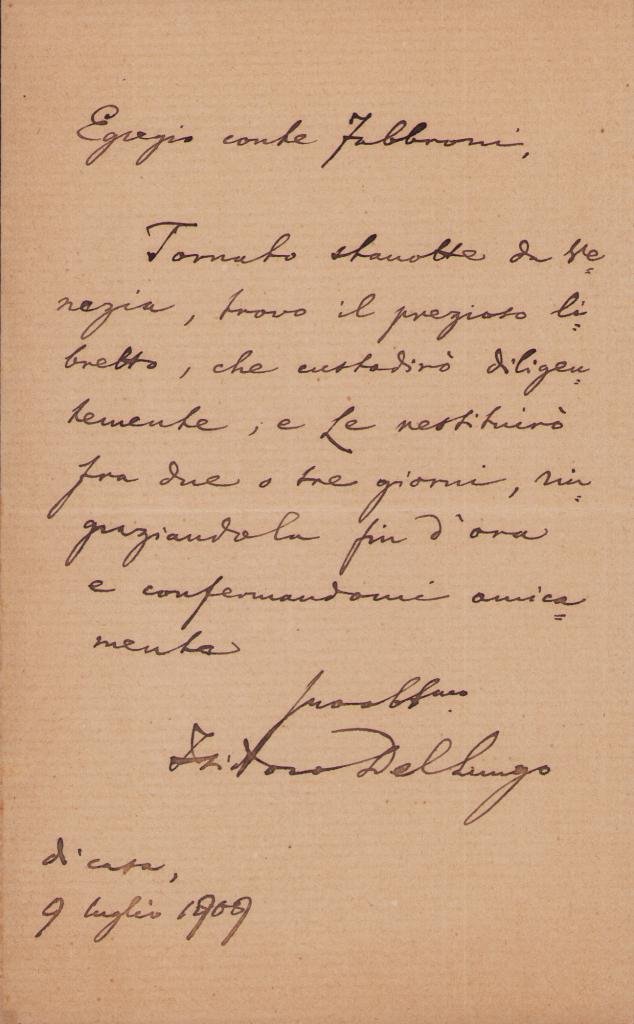 Egregio conte Fabbroni,
Tornato stanotte da Ve=
nezia, trovo il prezioso li=
bretto, che custodirò diligen=
temente, e Le restituirò
fra due o tre giorni, rin=
graziandola fin d'ora
e confermandomi amica=
mente
suo obbmo
Isidoro Del Lungo
di casa,
9 luglio 1909